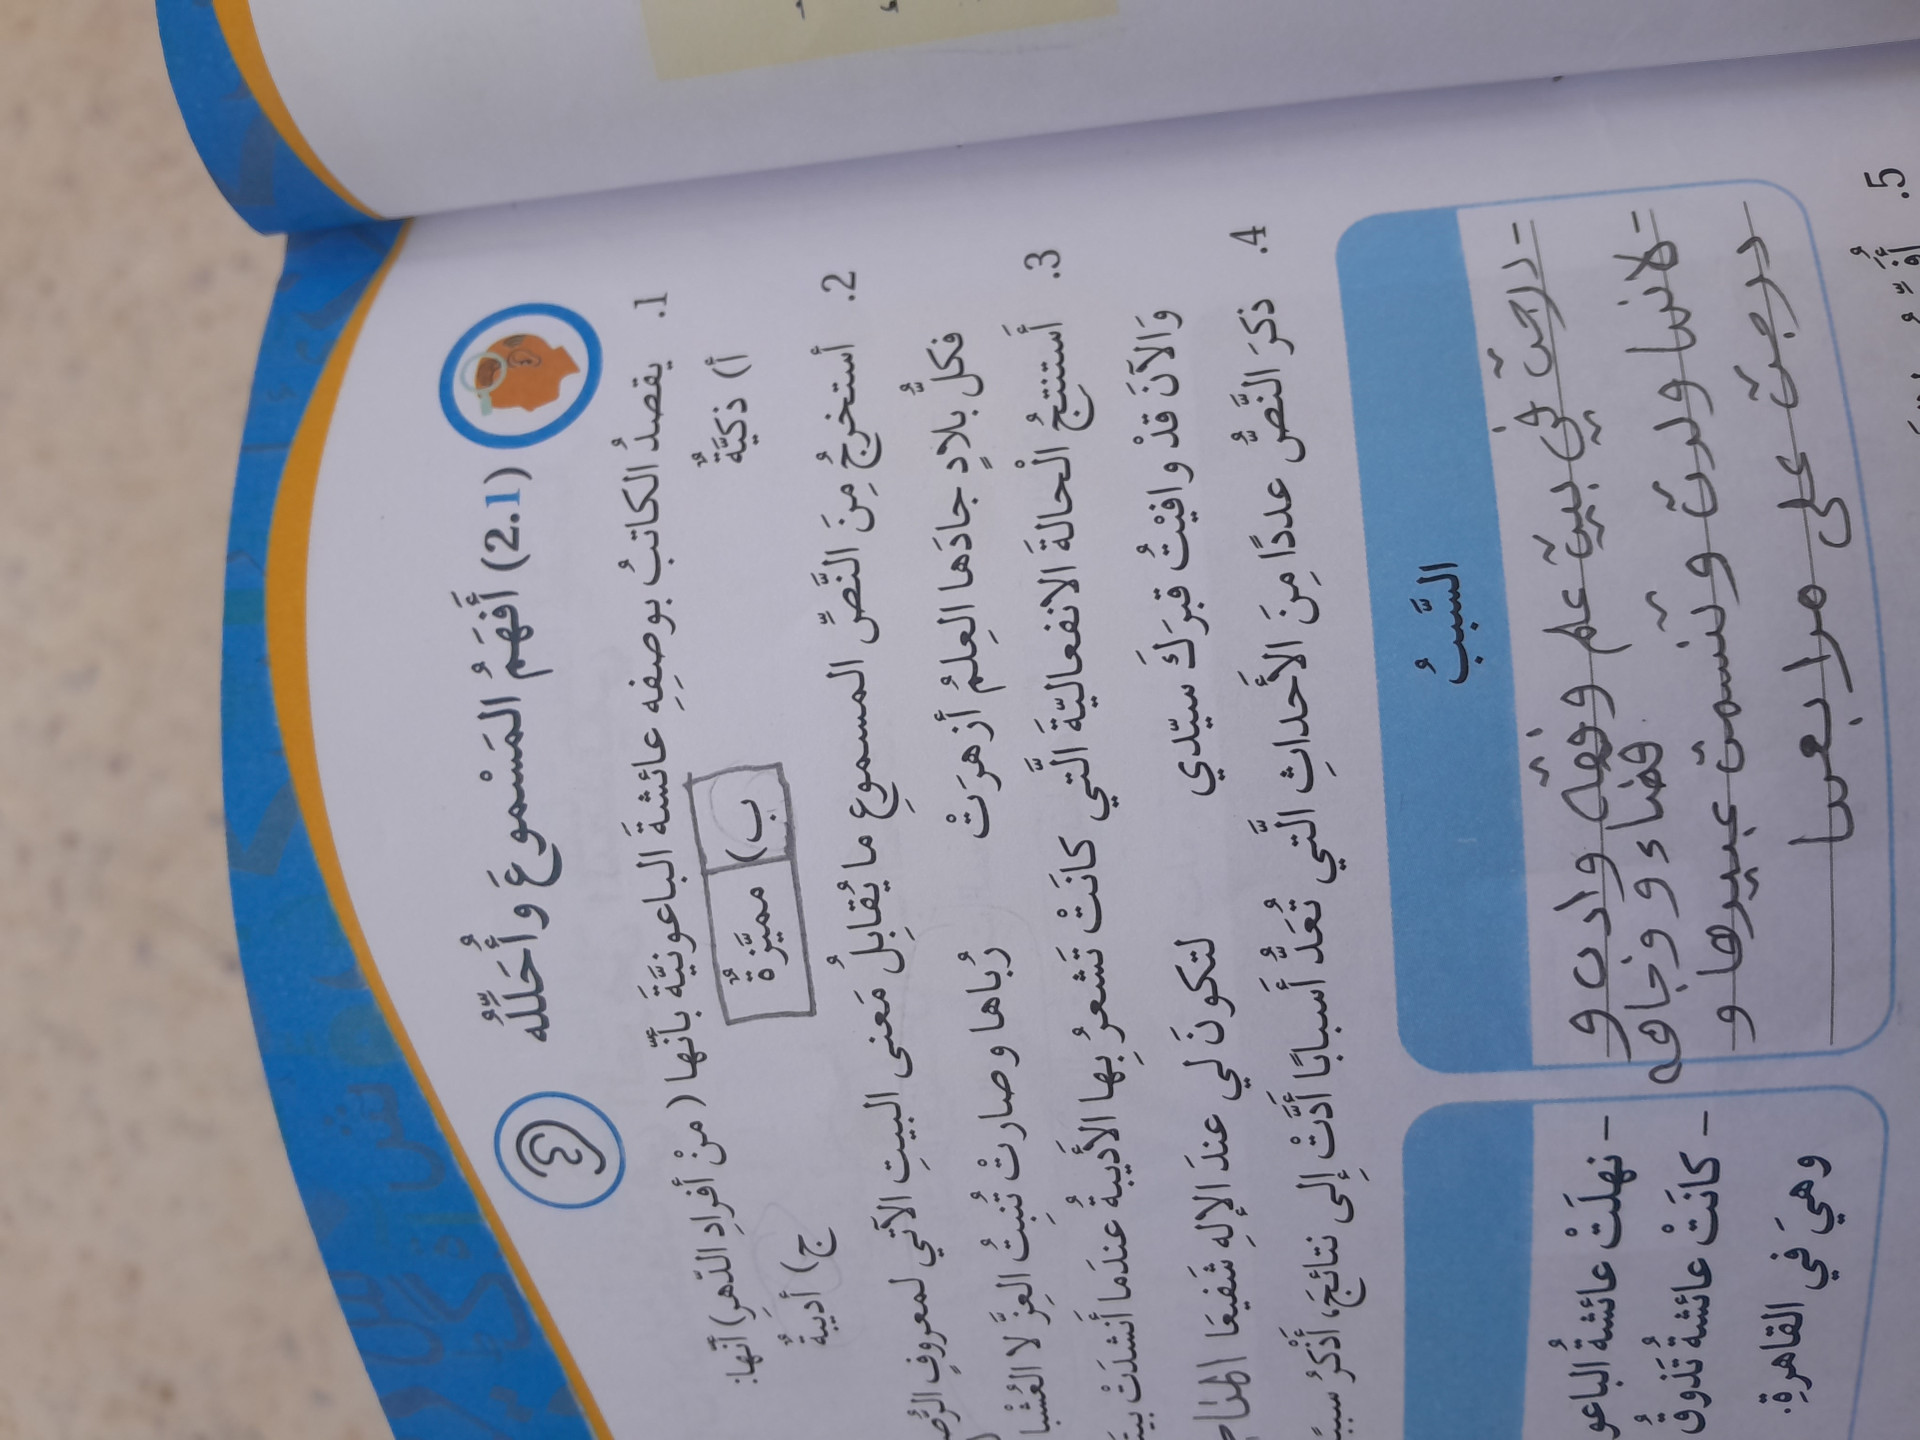 (2.1) أَفهَمُ المَسْموعَ وَأُحَلِّلُه
1. يقصدُ الكاتبُ بوصفِهِ عائشةَ الباعونيَّةَ بأنّها (منْ أفرادِ الدّهرِ) أنّها:
أ) ذكيَّةٌ ب) مميَّزةٌ ج) أديبةٌ
2. أستخرجُ مِنَ النَّصِّ المسموعِ ما يُقابِلُ مَعنى البيتِ الآتي لمعروفٍ
فكلُّ بلادٍ جادَها العِلمُ أزهرَتْ رُباها وصارتْ تُنبِتُ العِزَّ لا العُشْبا
3. أستنتجُ الْحالةَ الانفعاليّةَ الَّتي كانَتْ تَشعرُ بها الأديبةُ عندَما أنشدَتْ
وَالآنَ قدْ وافيْتُ قبرَكَ سيّدي لتكونَ لي عندَ الإلهِ شَفيعَا
4. ذكرَ النَّصُّ عددًا مِنَ الأَحداثِ الَّتي تُعَدُّ أَسبابًا أدَّتْ إلى نتائجَ، أَذْكرُ
السَّببُ
- درجت في بيت علم وفقه وادب و
قضاء ووجاهه
- لانها ولدت وتنسمت عبيرها و
درجت على مرابعها
- نهلَتْ عائشةُ
- كانَتْ عائشةُ تَذوقُ
وهيَ في القاهرةِ.
5.